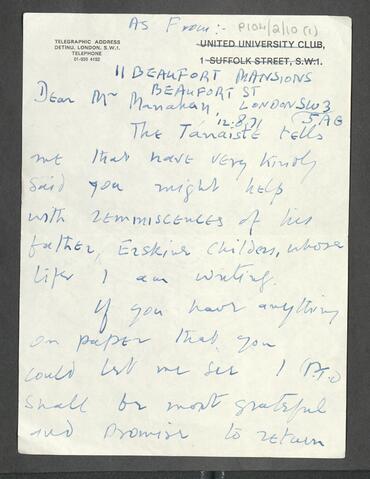 As From:- P104/2/10 (1)
TELEGRAPHIC ADDRESS
DETINU, LONDON, S.W.1.
TELEPHONE
01-930 4152
UNITED UNIVERSITY CLUB,
1 SUFFOLK STREET, S.W.1.
11 BEAUFORT MANSIONS
BEAUFORT ST
Dear Mr Manahan LONDON SW3
12.8.71
The Tánaiste tells
me that have very kindly
said you might help
with reminiscences of his
father, Erskine Childers, whose
life I am writing.
If you have anything
on paper that you
could let me see I (P.T.O)
shall be most grateful
and promise to return